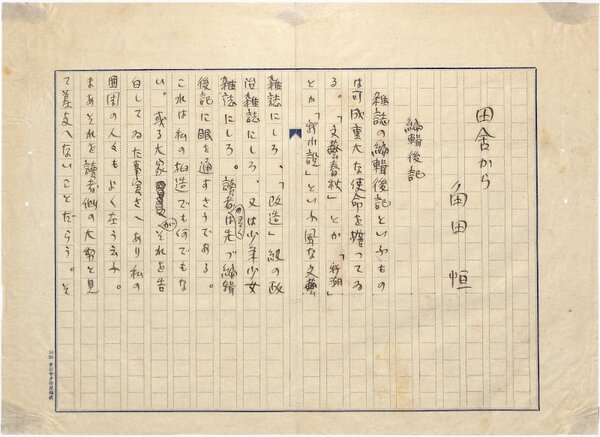 田舎から
角田 恒
編輯後記
雑誌の編輯後記といふもの
は可成重大な使命を擔つてゐ
る。「文藝春秋」とか「新潮」
とか「新小説」といふ風な文藝
雑誌にしろ、「改造」級の政
治雑誌にしろ、又は少年少女
雑誌にしろ。讀者は先づ編輯
後記に眼を通すさうである。
これは私の捏造でも何でもな
い。或る大家がそれを告
白してゐた事実さへあり私の
周囲の人々もよく左う云ふ。
まあそれを讀者側の大勢と見
て差支へないことだらう。そ